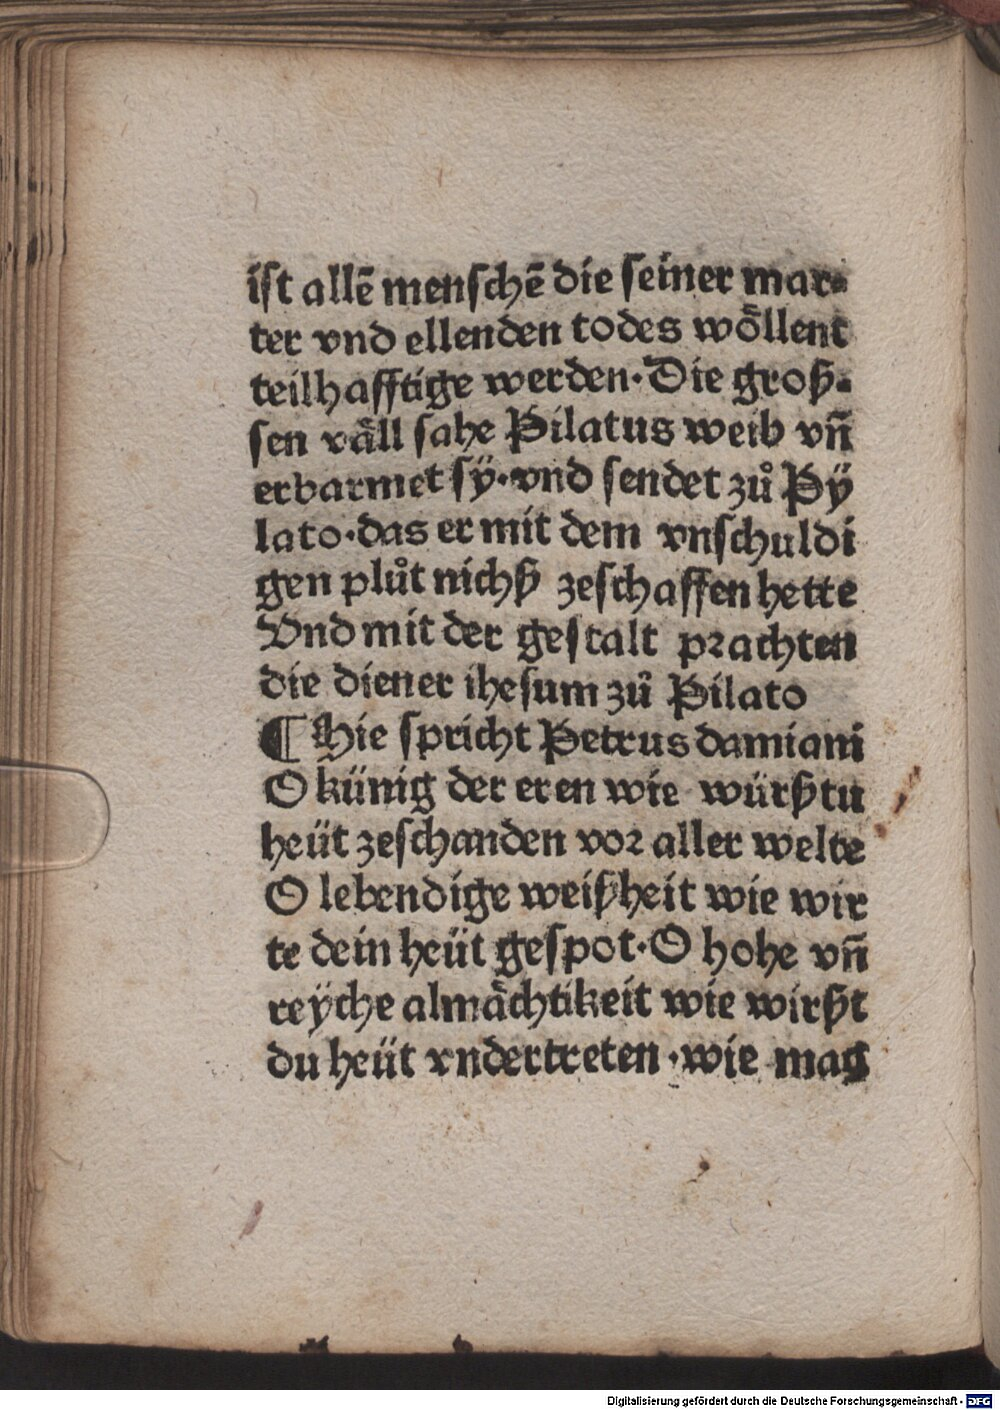 ist allē menschē die seiner mar⸗
ter vnd ellenden todes woͤllent
teilhafftige werden·Die groß⸗
sen vaͤll sahe Pilatus weib vn̄
erbarmet sÿ·vnd sendet zů Pÿ
lato·das er mit dem vnschuldi
gen plůt nichß zeschaffen hette
Vnd mit der gestalt prachten
die diener ihesum zů Pilato
¶ Hie spricht Petrus damiani
O künig der eren wie würßtu
heüt zeschanden vor aller welte
O lebendige weißheit wie wir
te dein heüt gespot·O hohe vn̄
reÿche almaͤchtikeit wie wirßt
du heüt vndertreten·wie mag
Digitalisierung gefördert durch die Deutsche Forschungsgemeinschaft - DFG